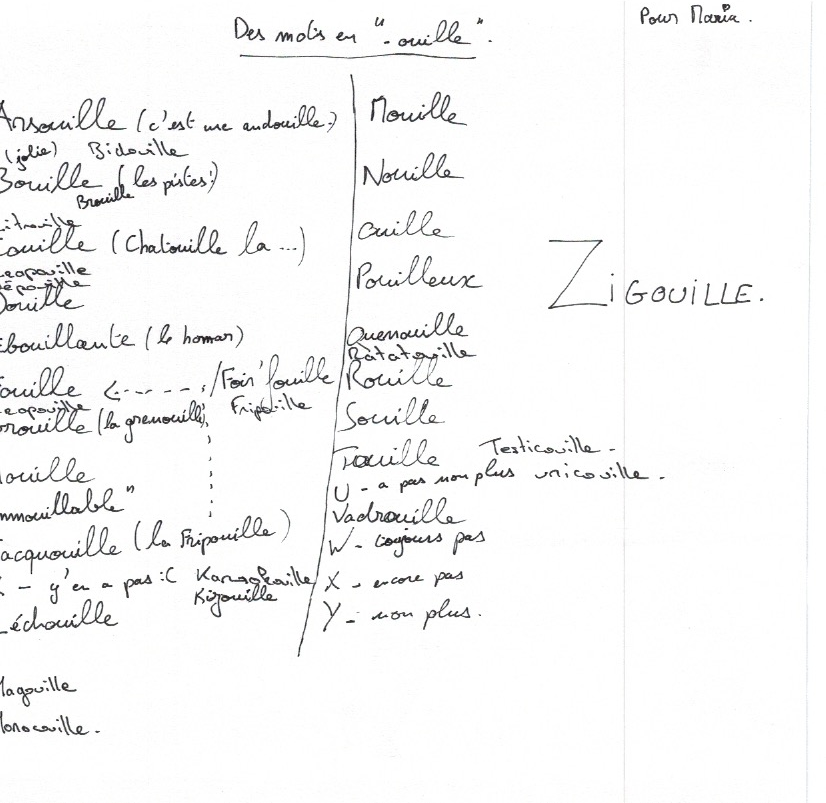 Des mots en "-ouille".
Pour Maria.
Arsouille (c'est une andouille)
(jolie) Bidouille
Bouille (les pistes!)
Brouille
Couille (Chatouille la ...)
Douille
Ebouillante (le homar)
Fouille <----- /Foir'fouille
Fripouille
Grouille (la grenouille)
Houille
Immouillable"
Jacquouille (la Fripouille)
K - y'en a pas :C
Kizouille
Léchouille
Magouille
Monocouille.
Mouille
Nouille
Ouille
Pouilleux
Quenouille
Ratatouille
Rouille
Souille
Touille Testicouille -
U - a pas non plus unicouille -
Vadrouille
W - toujours pas
X - encore pas
Y - non plus.
ZIGOUILLE.